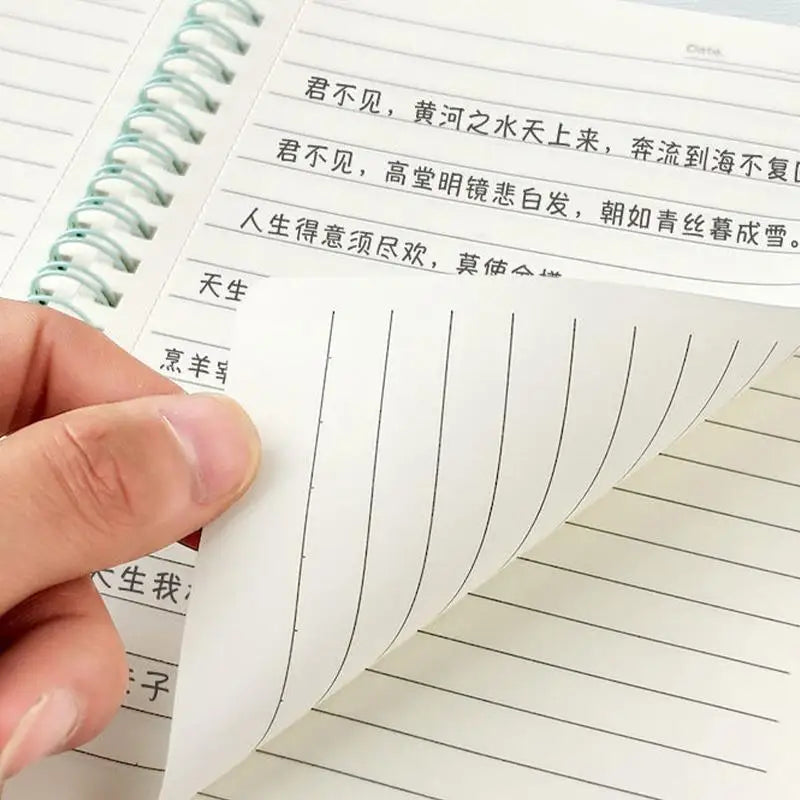 Date.
君不见，黄河之水天上来，奔流到海不复
君不见，高堂明镜悲白发，朝如青丝暮成雪。
人生得意须尽欢，莫使
天生
烹羊
生我
子